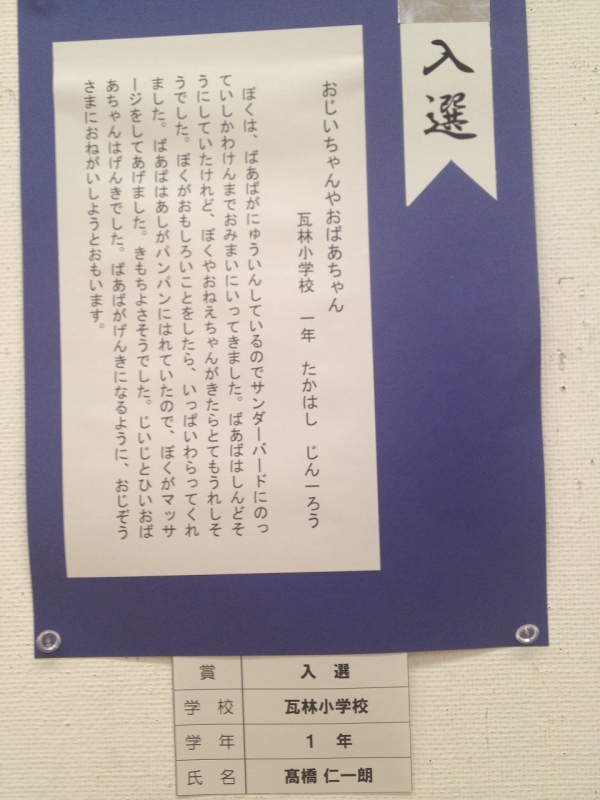 入選
おじいちゃんやおばあちゃん
瓦林小学校 一年 たかはし じん一ろう
ぼくは、ばあばがにゅういんしているのでサンダーバードにのっ
ていしかわけんまでおみまいにいってきました。ばあばはしんどそ
うにしていたけれど、ぼくやおねえちゃんがきたらとてもうれしそ
うでした。ぼくがおもしろいことをしたら、いっぱいわらってくれ
ました。ばあばはあしがパンパンにはれていたので、ぼくがマッサ
ージをしてあげました。きもちよさそうでした。じいじとひいおば
あちゃんはげんきでした。ばあばがげんきになるように、おじぞう
さまにおねがいしようとおもいます。
賞 入選
学校 瓦林小学校
学年 1年
氏名 髙橋 仁一朗